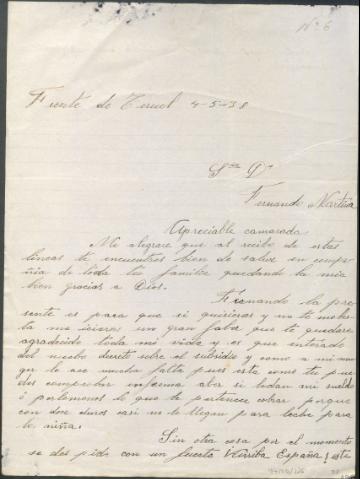 Nº 6
Frente de Teruel 4-5-38
Sr. D.
Fernando Martina
Apreciable camarada
Me alegrare que al recibo de estas
lineas te encuentres bien de salud en compa
ñia de toda tu familia quedando la mia
bien gracias a Dios.
Fernando la pre
sente es para que si quisieras y no te moles
ta me icieras un gran fabor que te quedare
agradecido toda mi vida y es que enterado
del nuebo decreto sobre el subsidio y como a mi mu
ger le ace mucha falta pues esta como tu pue
des comprobar enferma aber si le dan mi sueldo
ó por lo menos lo que le pertenece cobrar porque
con dos duros casi no le llegan para leche para
la niña.
Sin otra cosa por el momento
se des pide con un fuerte ¡Arriba España! este